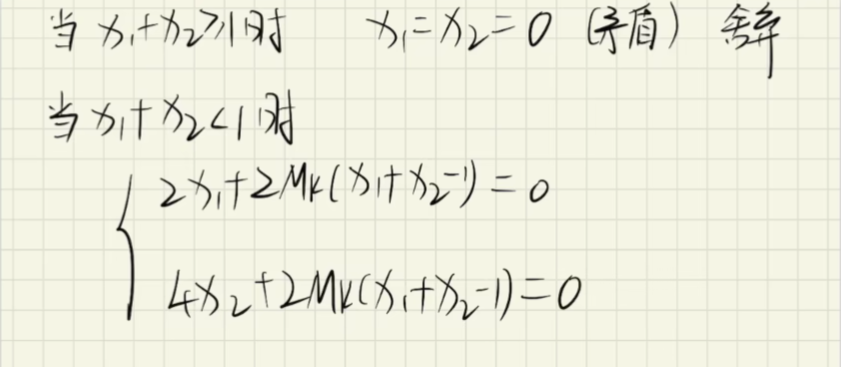 当 x₁+x₂≥1时 x₁=x₂=0 (矛盾) 舍弃
当 x₁+x₂<1时
{ 2x₁+2Mk(x₁+x₂-1)=0
4x₂+2Mk(x₁+x₂-1)=0